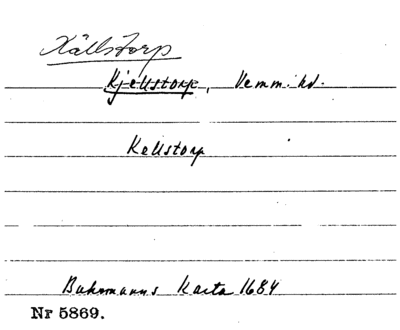 Källstorp
Kjellstorp, Vemm. hd.
Kellstorp
Buhrmanns Karta 1684
Nr 5869.